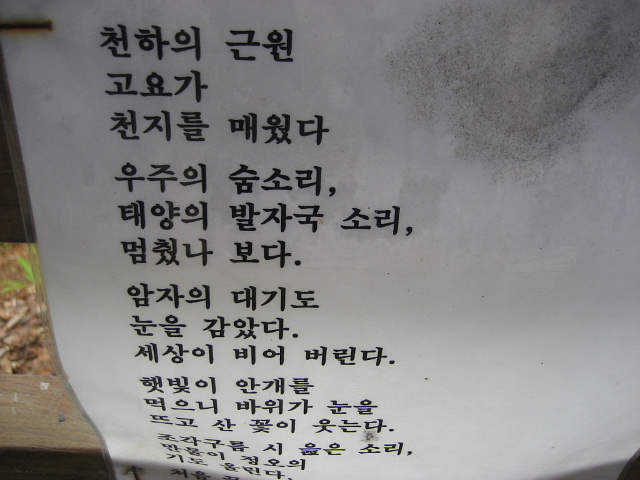 천하의 근원
고요가
천지를 매웠다
우주의 숨소리,
태양의 발자국 소리,
멈췄나 보다.
암자의 대기도
눈을 감았다.
세상이 비어 버린다.
햇빛이 안개를
먹으니 바위가 눈을
뜨고 산 꽃이 웃는다.
조각구름 시 읊은 소리,
만물이 정오의
기도 올린다.